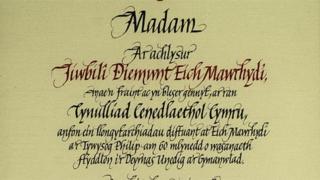 Madam
Ar achlysur
Jiwbilî Diemwnt Eich Mawrhydi,
mae'n fraint ac yn bleser gennyf, ar ran
Cynulliad Cenedlaethol Cymru,
anfon ein llongyfarchiadau diffuant at Eich Mawrhydi
a'r Tywysog Philip am 60 mlynedd o wasanaeth
ffyddlon i'r Deyrnas Unedig a'r Gymanwlad.